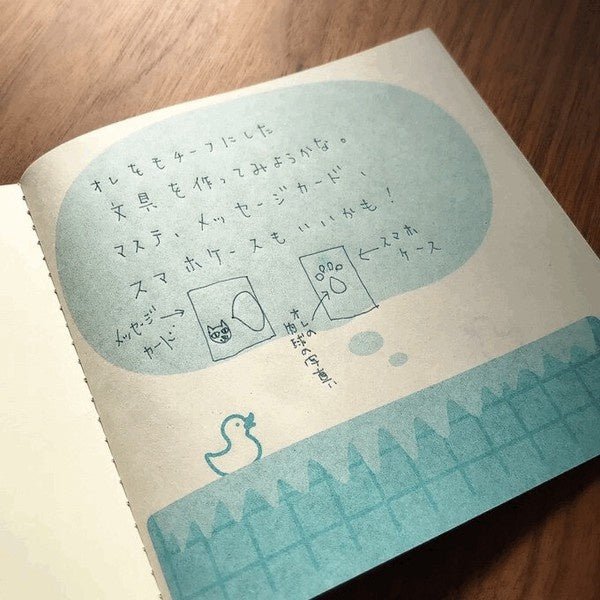 オレをモチーフにした
文具を作ってみようかな。
マステ、メッセージカード、
スマホケースもいいかも!
メッセージ
カード
オレの
肉球の写真
スマホ
ケース